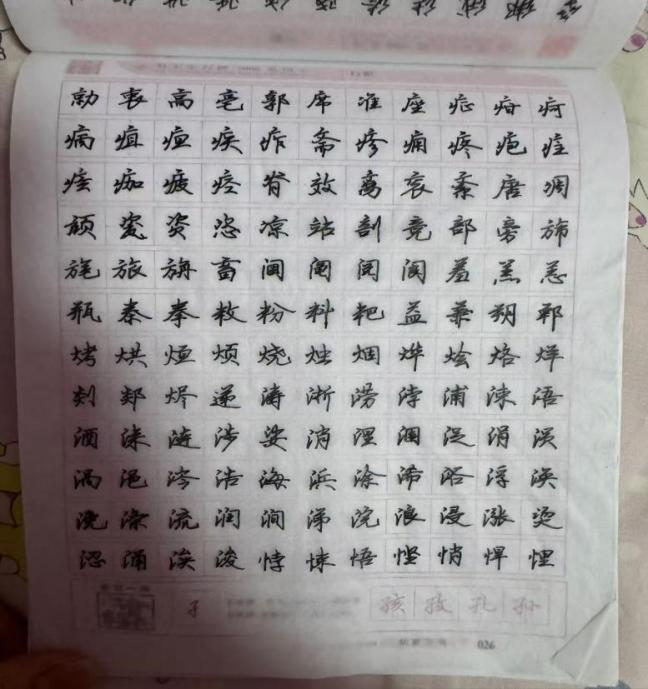 勍衷高亳郭席准座症疳疴
病疽疸疾痄斋疹痈疼疱疰
痃痂疲痉脊效离衮紊唐凋
颃瓷资恣凉站剖竞部旁旆
旄旅旃畜阃阄阅阆羞羔恙
瓶桊拳敉粉料粑益兼朔郸
烤烘烜烦烧烛烟烨烩烙烊
剡郯烬递涛浙涝浡浦涑浯
酒涞涟涉娑消涅涠浞涓涢
涡浥涔浩海浜涂浠浴浮涣
浼涤流润涧涕浣浪浸涨烫
涩涌涘浚悖悚悟悭悄悍悝
孑 孩孜孔孙
026